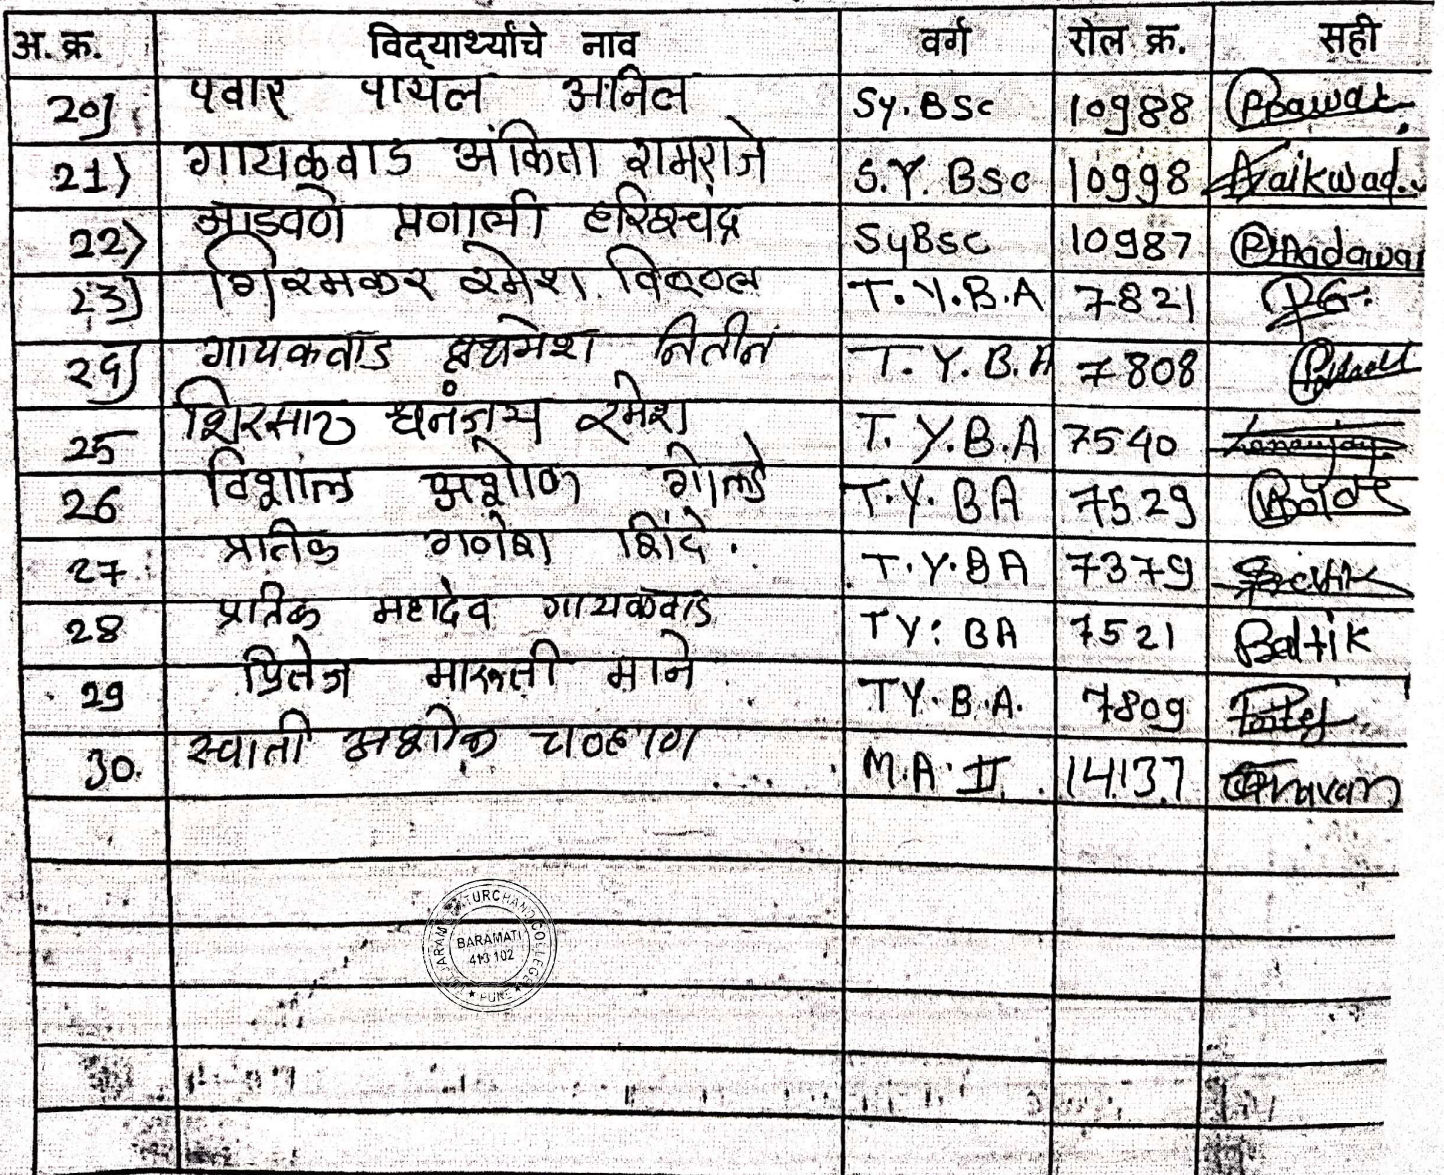 अ. क्र. विद्यार्थ्यांचे नाव वर्ग रोल क्र. सही
20) पवार पायल अनिल Sy. BSc 10988 PPawar
21) गायकवाड अंकिता रामराजे S.Y. BSc 10998 Gaikwad
22) आडवणे प्रणाली हरिश्चंद्र SyBsc 10987
23) शिरमकर रमेश विठ्ठल T.Y.B.A 7821
24) गायकवाड प्रथमेश नितीन T.Y.B.A 7808
25 शिरसाठ धनंजय रमेश T.Y.B.A 7540
26 विशाल अशोक T.Y.BA 7529
27 प्रतिक गणेश शिंदे. T.Y.BA 7379
28 प्रतिक महादेव गायकवाड TY: BA 7521
29 प्रितेज मारूती माने TY. B.A. 7809
30. स्वाती अशोक चव्हाण M.A. II 14137 Chavan
TULJARAM CHATURCHAND COLLEGE
BARAMATI
413 102
★ PUNE ★